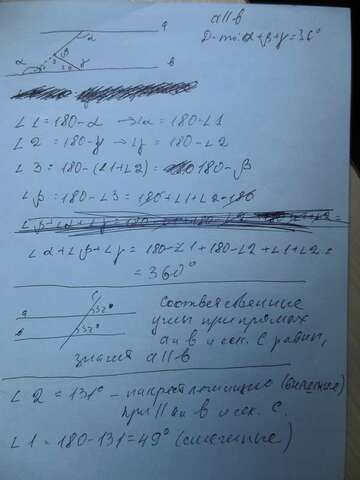 a || в
Д-ть: α+β+γ=360°
a
α
β
3
α
1
2
γ
в
∠1=180-α → α=180-∠1
∠2=180-γ → γ=180-∠2
∠3=180-(∠1+∠2)= 180-β
∠β=180-∠3=180+∠1+∠2-180
∠α+∠β+∠γ=180-∠1+180-∠2+∠1+∠2=
=360°
c
a
132°
в
132°
Соответственные
углы при прямых
a и в и сек. C равны,
значит a || в
∠2=131° - накрест лежащие
при || a и в и сек. C.
∠1=180-131=49° (смежные)